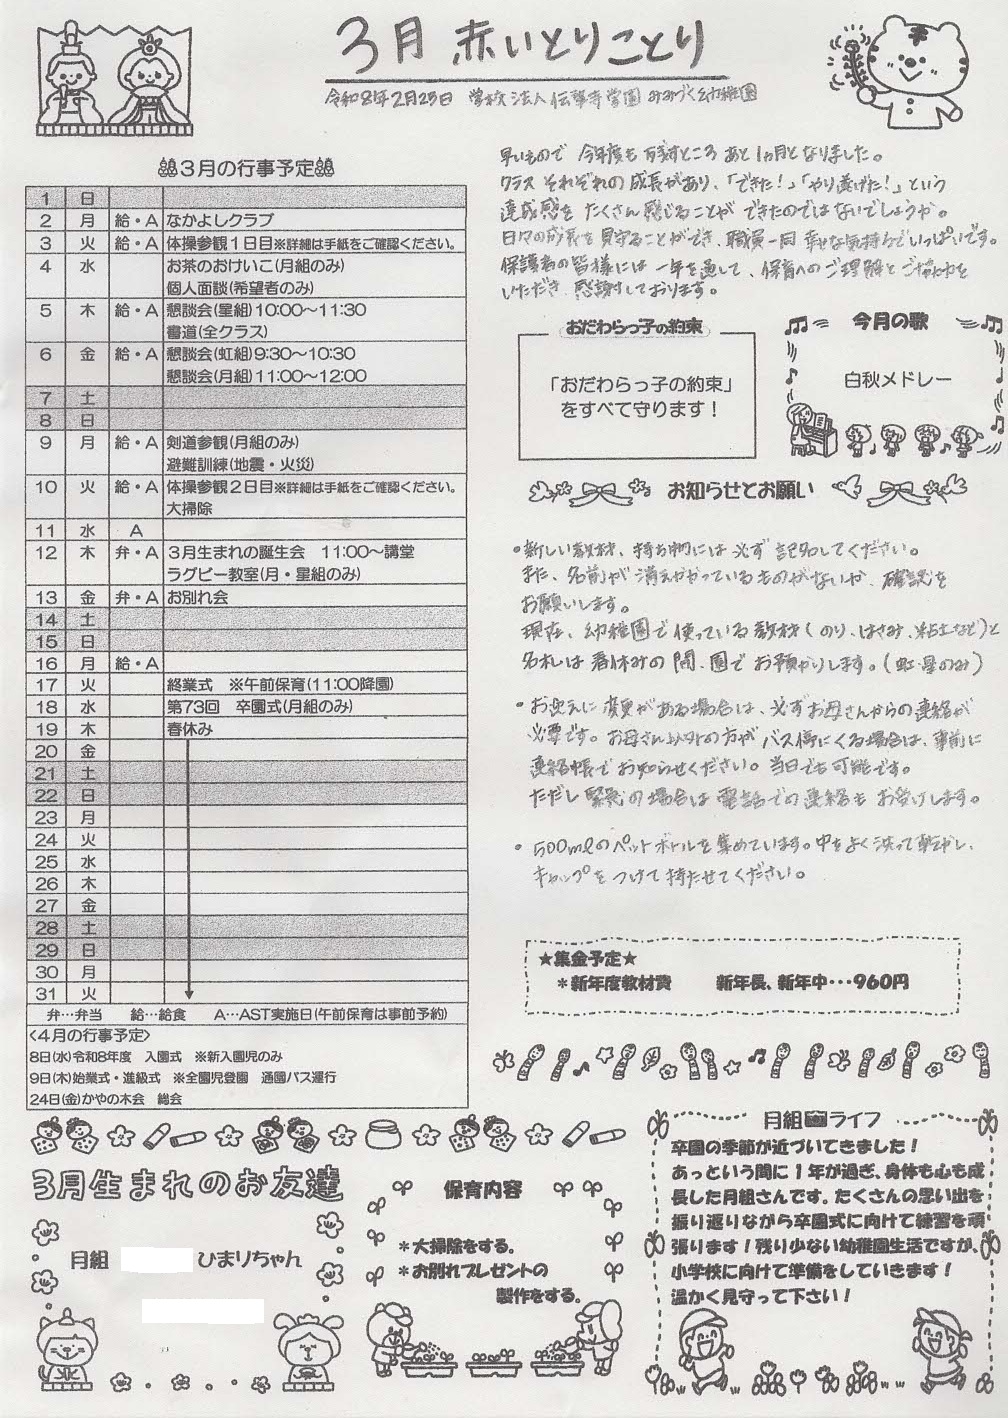 3月 赤いとりことり
令和8年2月25日 学校法人伝肇寺学園 みみづく幼稚園
3月の行事予定
1 日
2 月 給・A なかよしクラブ
3 火 給・A 体操参観1日目※詳細は手紙をご確認ください。
4 水 お茶のおけいこ(月組のみ)
個人面談(希望者のみ)
5 木 給・A 懇談会(星組)10:00～11:30
書道(全クラス)
6 金 給・A 懇談会(虹組)9:30～10:30
懇談会(月組)11:00～12:00
7 土
8 日
9 月 給・A 剣道参観(月組のみ)
避難訓練(地震・火災)
10 火 給・A 体操参観2日目※詳細は手紙をご確認ください。
大掃除
11 水 A
12 木 弁・A 3月生まれの誕生会 11:00～講堂
ラグビー教室(月・星組のみ)
13 金 弁・A お別れ会
14 土
15 日
16 月 給・A
17 火 終業式 ※午前保育(11:00降園)
18 水 第73回 卒園式(月組のみ)
19 木 春休み
20 金
21 土
22 日
23 月
24 火
25 水
26 木
27 金
28 土
29 日
30 月
31 火
弁…弁当 給…給食 A…AST実施日(午前保育は事前予約)
<4月の行事予定>
8日(水)令和8年度 入園式 ※新入園児のみ
9日(木)始業式・進級式 ※全園児登園 通園バス運行
24日(金)かやの木会 総会
早いもので 今年度も 残すところ あと1ヵ月となりました。
クラス それぞれの 成長があり、「できた!」「やり遂げた!」という
達成感を たくさん感じることが できたのではないでしょうか。
日々の成長を見守ることができ、職員一同 幸せな気持ちでいっぱいです。
保護者の皆様には 一年を通して、保育へのご理解と ご協力を
いただき 感謝しております。
おだわらっ子の約束
「おだわらっ子の約束」
をすべて守ります!
今月の歌
白秋メドレー
お知らせとお願い
・新しい教材、持ち物には 必ず 記名してください。
また、名前が 消えかかっているものがないか、確認を
お願いします。
現在、幼稚園で使っている教材(のり、はさみ、粘土など)と
名札は 春休みの間、園で お預かりします。(虹・星のみ)
・お迎えに 変更がある場合は、必ずお母さんからの連絡が
必要です。お母さん以外の方が バス停にくる場合は、事前に
連絡帳で お知らせください。当日でも可能です。
ただし 緊急の場合は 電話での連絡も お受けします。
・500mlのペットボトルを集めています。中をよく洗って乾かし、
キャップを つけて 持たせてください。
★集金予定★
*新年度教材費 新年長、新年中…960円
3月生まれのお友達
月組 ひまりちゃん
保育内容
*大掃除をする。
*お別れプレゼントの
製作をする。
月組ライフ
卒園の季節が近づいてきました!
あっという間に1年が過ぎ、身体も心も成
長した月組さんです。たくさんの思い出を
振り返りながら卒園式に向けて練習を頑
張ります!残り少ない幼稚園生活ですが、
小学校に向けて準備をしていきます!
温かく見守って下さい!